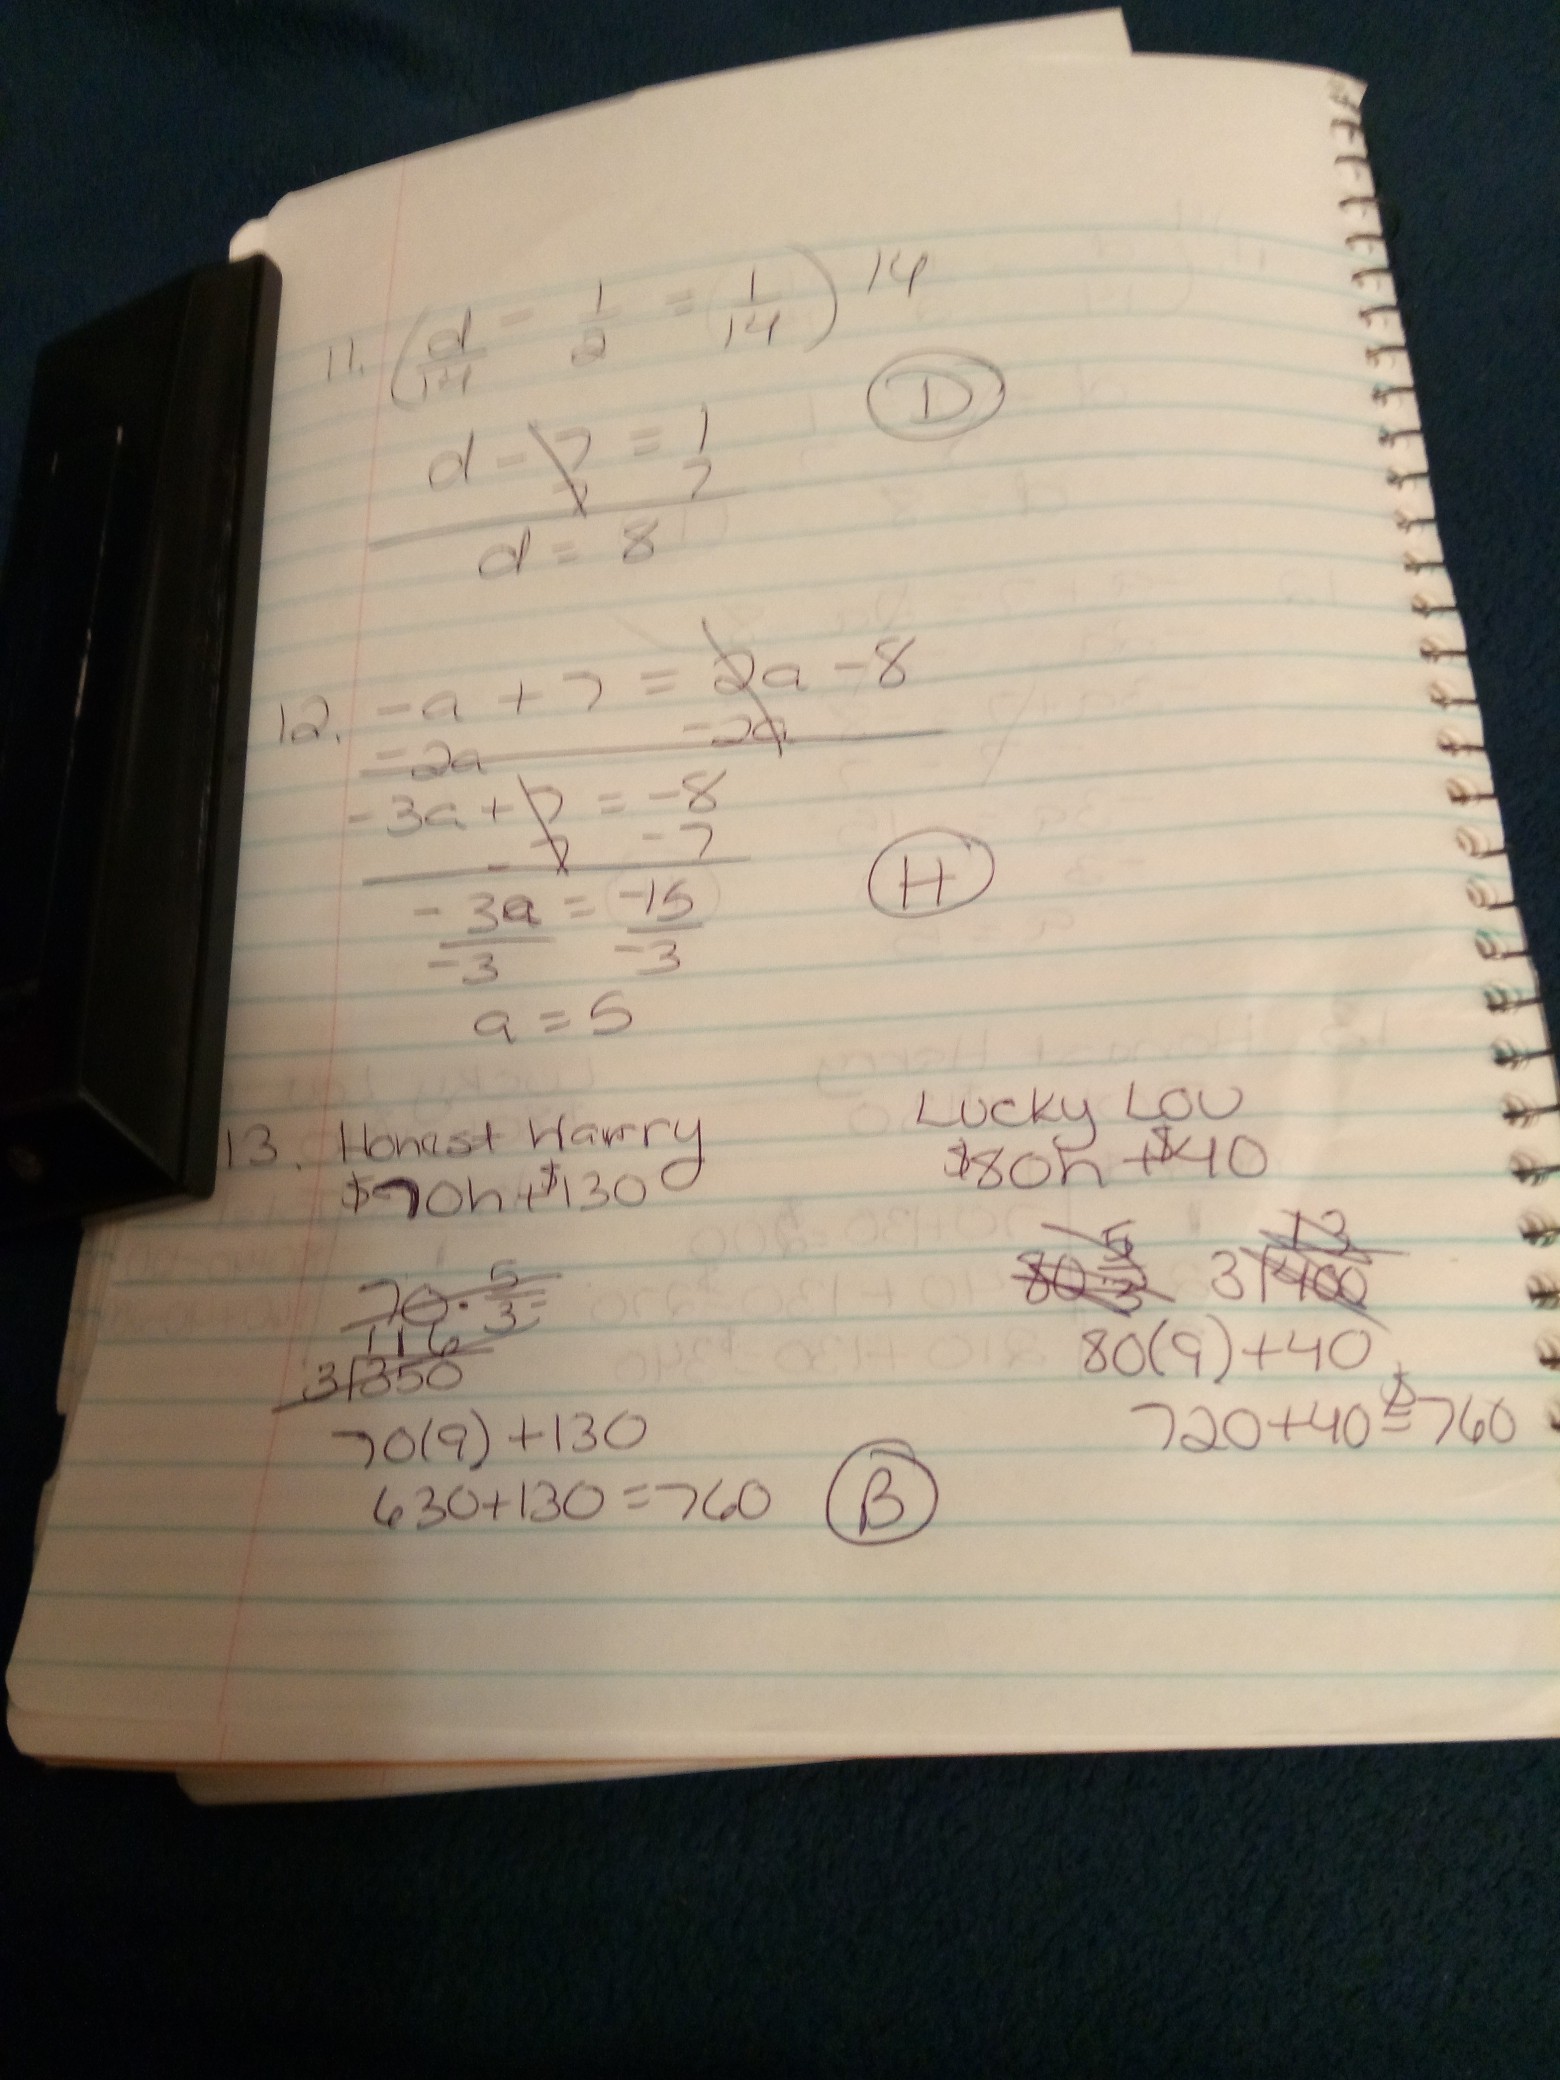 11. (d/14 - 1/2 = 1/14) 14
D
d - 7 = 1
7 7
d = 8
12. -a + 7 = 2a - 8
-2a -2a
-3a + 7 = -8
-7 -7
-3a = -15
-3 -3
H
a = 5
13. Honest Harry
$70h + $130
70 · 5/3 =
116
3)350
70(9) + 130
630 + 130 = 760
B
Lucky Lou
$80h + $40
80 · 5/3
13
3)400
80(9) + 40
720 + 40 = $760